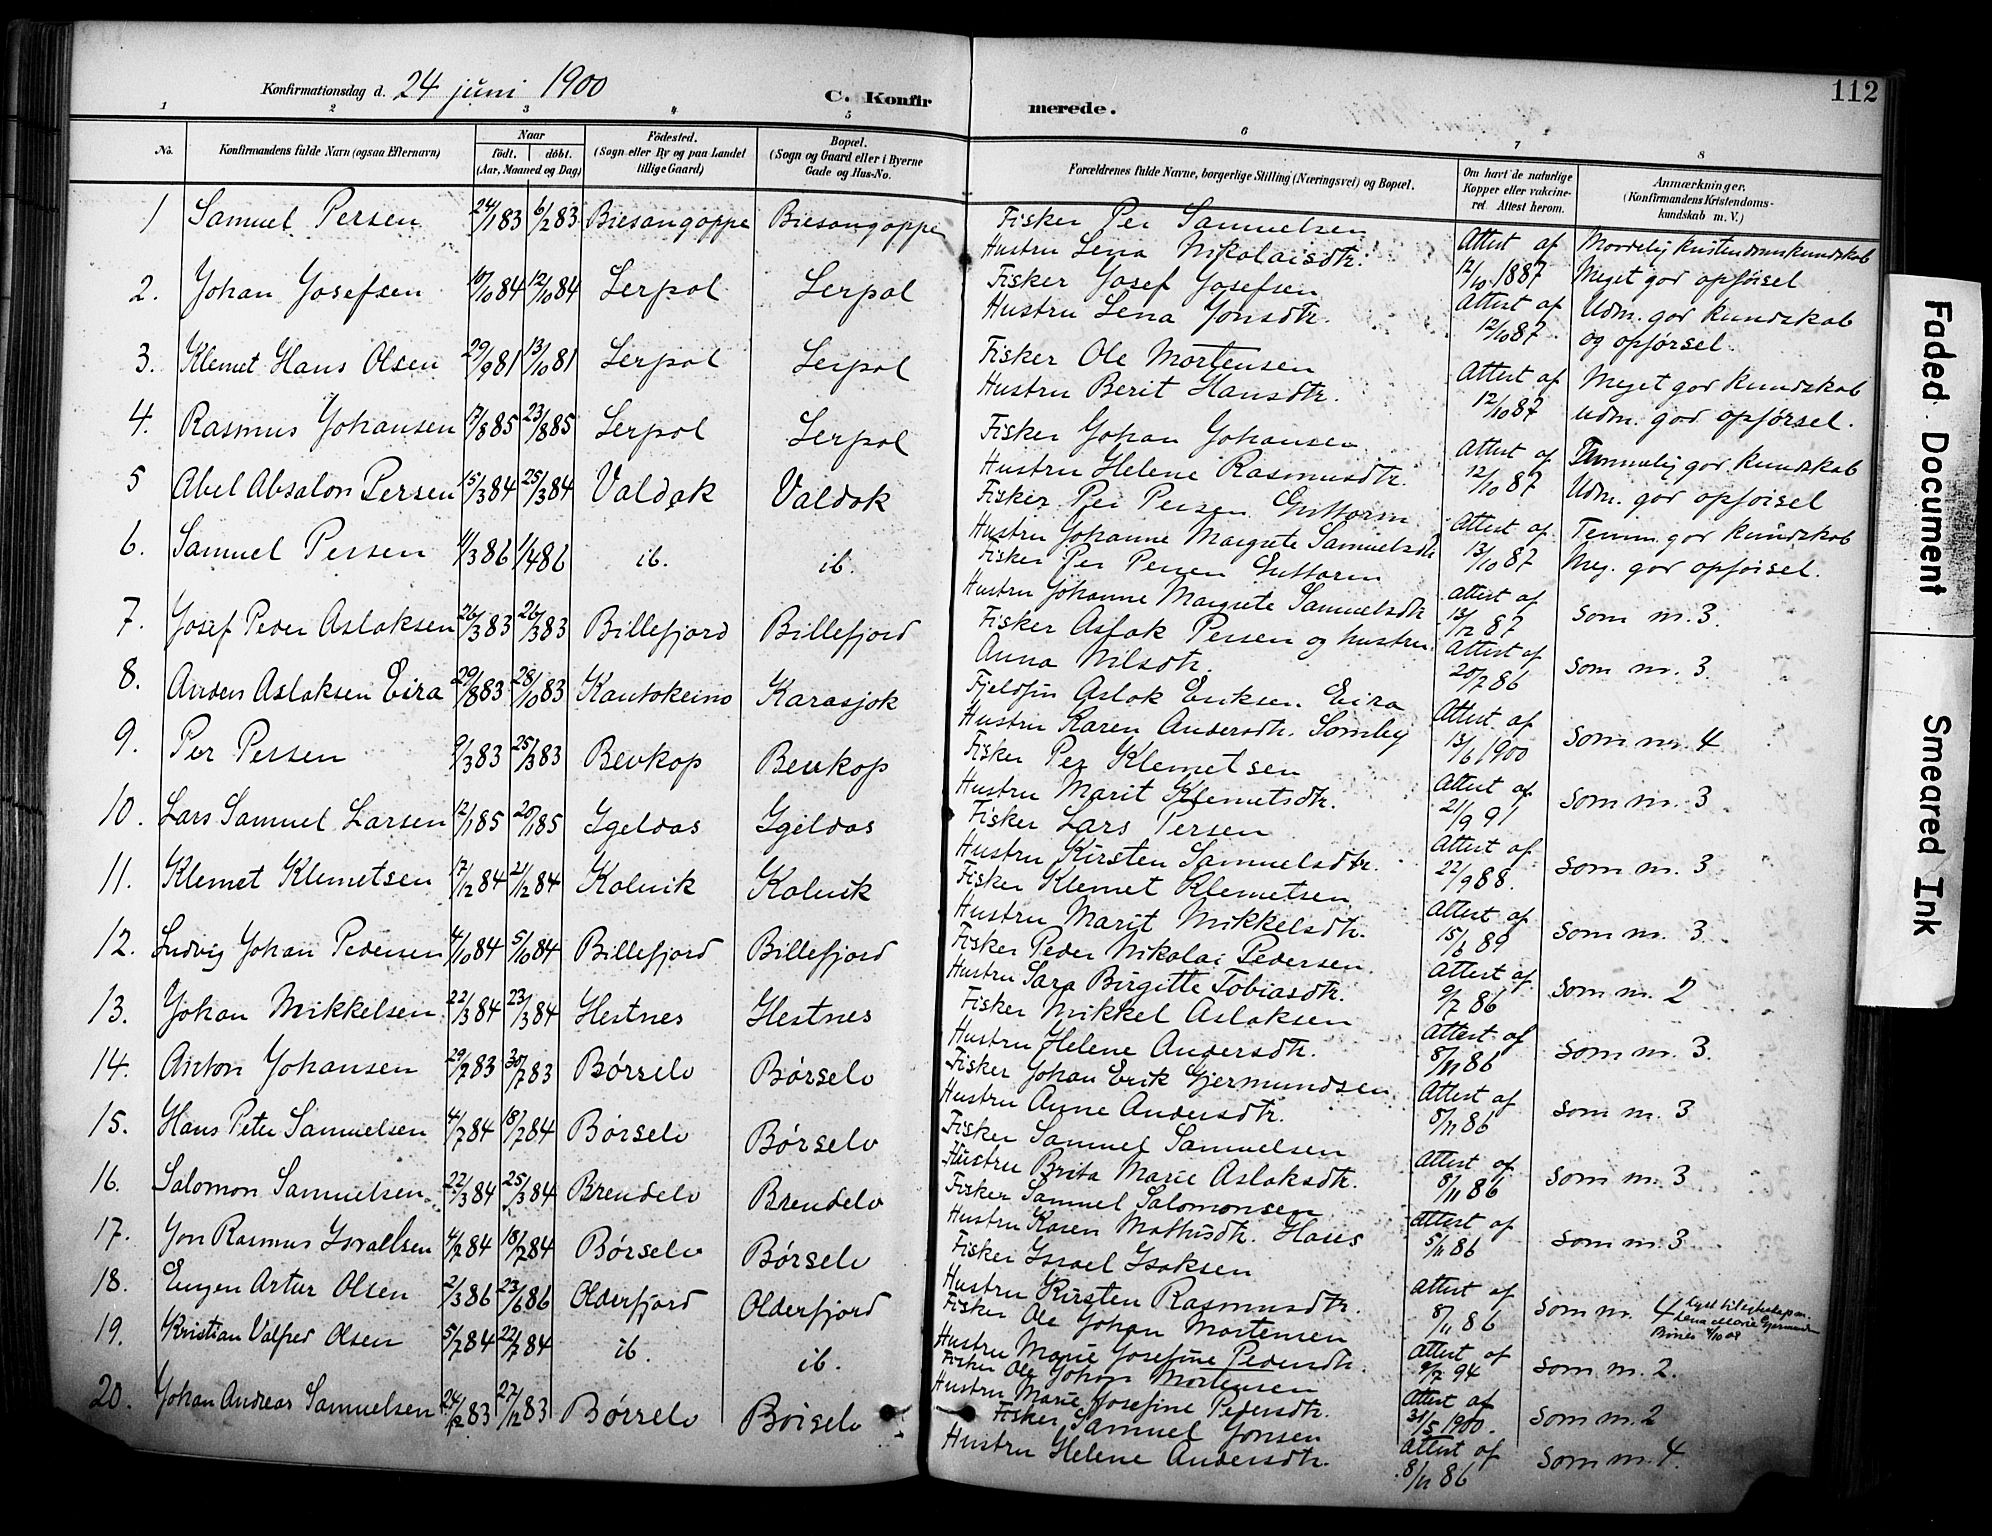 112
Konfirmationsdag d. 24 juni 1900
C. Konfirmerede.
1 2 3 4 5 6 7 8
No.
Konfirmandens fulde Navn (ogsaa Efternavn)
Naar
født. døbt.
(Aar, Maaned og Dag)
Fødested.
(Sogn eller By og paa Landet
tillige Gaard)
Bopæl.
(Sogn og Gaard eller i Byerne
Gade og Hus-No.
Forældrenes fulde Navne, borgerlige Stilling (Næringsvei) og Bopæl.
Om havt de naturlige
Kopper eller vakcine-
ret. Attest herom.
Anmærkninger.
(Konfirmandens Kristendoms-
kundskab m. V.)
1 Samuel Persen 24/1 83 6/2 83 Biesangoppe Biesangoppe Fisker Per Samuelsen
Hustru Lena Nikolaisdtr. Attest af 12/10 1887 kristendomskundskab
Meget god opførsel
2. Johan Josefsen 10/10 84 12/10 84 Lerpol Lerpol Fisker Josef Josefsen
Hustru Lena Jonsdtr. Attest af 12/10 87 Udm. god kundskab
og opførsel.
3. Klemet Hans Olsen 29/9 81 13/10 81 Lerpol Lerpol Fisker Ole Mortensen
Hustru Berit Hansdtr. Attest af 12/10 87 Meget god kundskab
udm. god opførsel.
4. Rasmus Johansen 17/8 85 23/8 85 Lerpol Lerpol Fisker Johan Johansen
Hustru Helene Rasmusdtr. Attest af 12/10 87 Temmelig god kundskab
Udm. god opførsel
5 Abel Absalon Persen 15/3 84 25/3 84 Valdak Valdak Fisker Per Persen Guttorm
Hustru Johanne Margrete Samuelsdtr Attest af 13/10 87 Temm. god kundskab
Meg. god opførsel.
6. Samuel Persen 4/3 86 1/4 86 ib. ib. Fisker Per Persen Guttorm
Hustru Johanne Margrete Samuelsdtr Attest af 13/12 87 som nr. 3.
7. Josef Peder Aslaksen 26/3 83 26/3 83 Billefjord Billefjord Fisker Aslak Persen og hustru
Anna Nilsdtr. Attest af 20/7 86 som nr. 3
8. Anders Aslaksen Eira 29/8 83 28/10 83 Kautokeino Karasjok Fjeldfin Aslak Eriksen Eira
Hustru Karen Andersdtr. Somby Attest af 13/6 1900 som nr. 4
9. Per Persen 9/3 83 25/3 83 Bevkop Bevkop Fisker Per Klemetsen
Hustru Marit Klemetsdtr. Attest af 21/9 91 som nr. 3
10. Lars Samuel Larsen 12/1 85 20/1 85 Igeldas Igeldas Fisker Lars Persen
Hustru Kirsten Samuelsdtr. Attest af 22/9 88. som nr. 3
11. Klemet Klemetsen 17/12 84 21/12 84 Kolvik Kolvik Fisker Klemet Klemetsen
Hustru Marit Mikkelsdtr. Attest af 15/6 89 som nr. 3.
12. Ludvig Johan Pedersen 4/10 84 5/10 84 Billefjord Billefjord Fisker Peder Nikolai Pedersen
Hustru Sara Birgitte Tobiasdtr. Attest af 9/7 86 som nr. 2
13. Johan Mikkelsen 22/3 84 23/3 84 Hestnes Hestnes Fisker Mikkel Aslaksen
Hustru Helene Andersdtr. Attest af 8/11 86 som nr. 3.
14. Anton Johansen 29/7 83 30/7 83 Børselv Børselv Fisker Johan Erik Gjermundsen
Hustru Anne Andersdtr. Attest af 8/11 86 som nr. 3
15. Hans Peter Samuelsen 4/2 84 18/2 84 Børselv Børselv Fisker Samuel Samuelsen
Hustru Brita Marie Aslaksdtr. Attest af 8/11 86 som nr. 3
16. Salomon Samuelsen 22/3 84 25/3 84 Brendelv Brendelv Fisker Samuel Salomonsen
Hustru Karen Mathisdtr. Attest af 5/11 86 som nr. 3
17. Jon Rasmus Israelsen 4/2 84 18/2 84 Børselv Børselv Fisker Israel Isaksen
Hustru Kirsten Rasmusdtr. Attest af 8/11 86 som nr. 4
Lena Marie
18. Eugen Artur Olsen 2/3 86 23/6 86 Olderfjord Olderfjord Fisker Ole Johan Mortensen
Hustru Marie Josefine Pedersdtr. Attest af 9/7 94 som nr. 2.
19. Kristian Valfred Olsen 5/7 84 22/7 84 ib. ib. Fisker Ole Johan Mortensen
Hustru Marie Josefine Pedersdtr. Attest af 31/5 1900. som nr. 2
20. Johan Andreas Samuelsen 24/12 83 27/12 83 Børselv Børselv Fisker Samuel Jonsen
Hustru Helene Andersdtr. Attest af 8/11 86 som nr. 4.
Faded Document
Smeared Ink